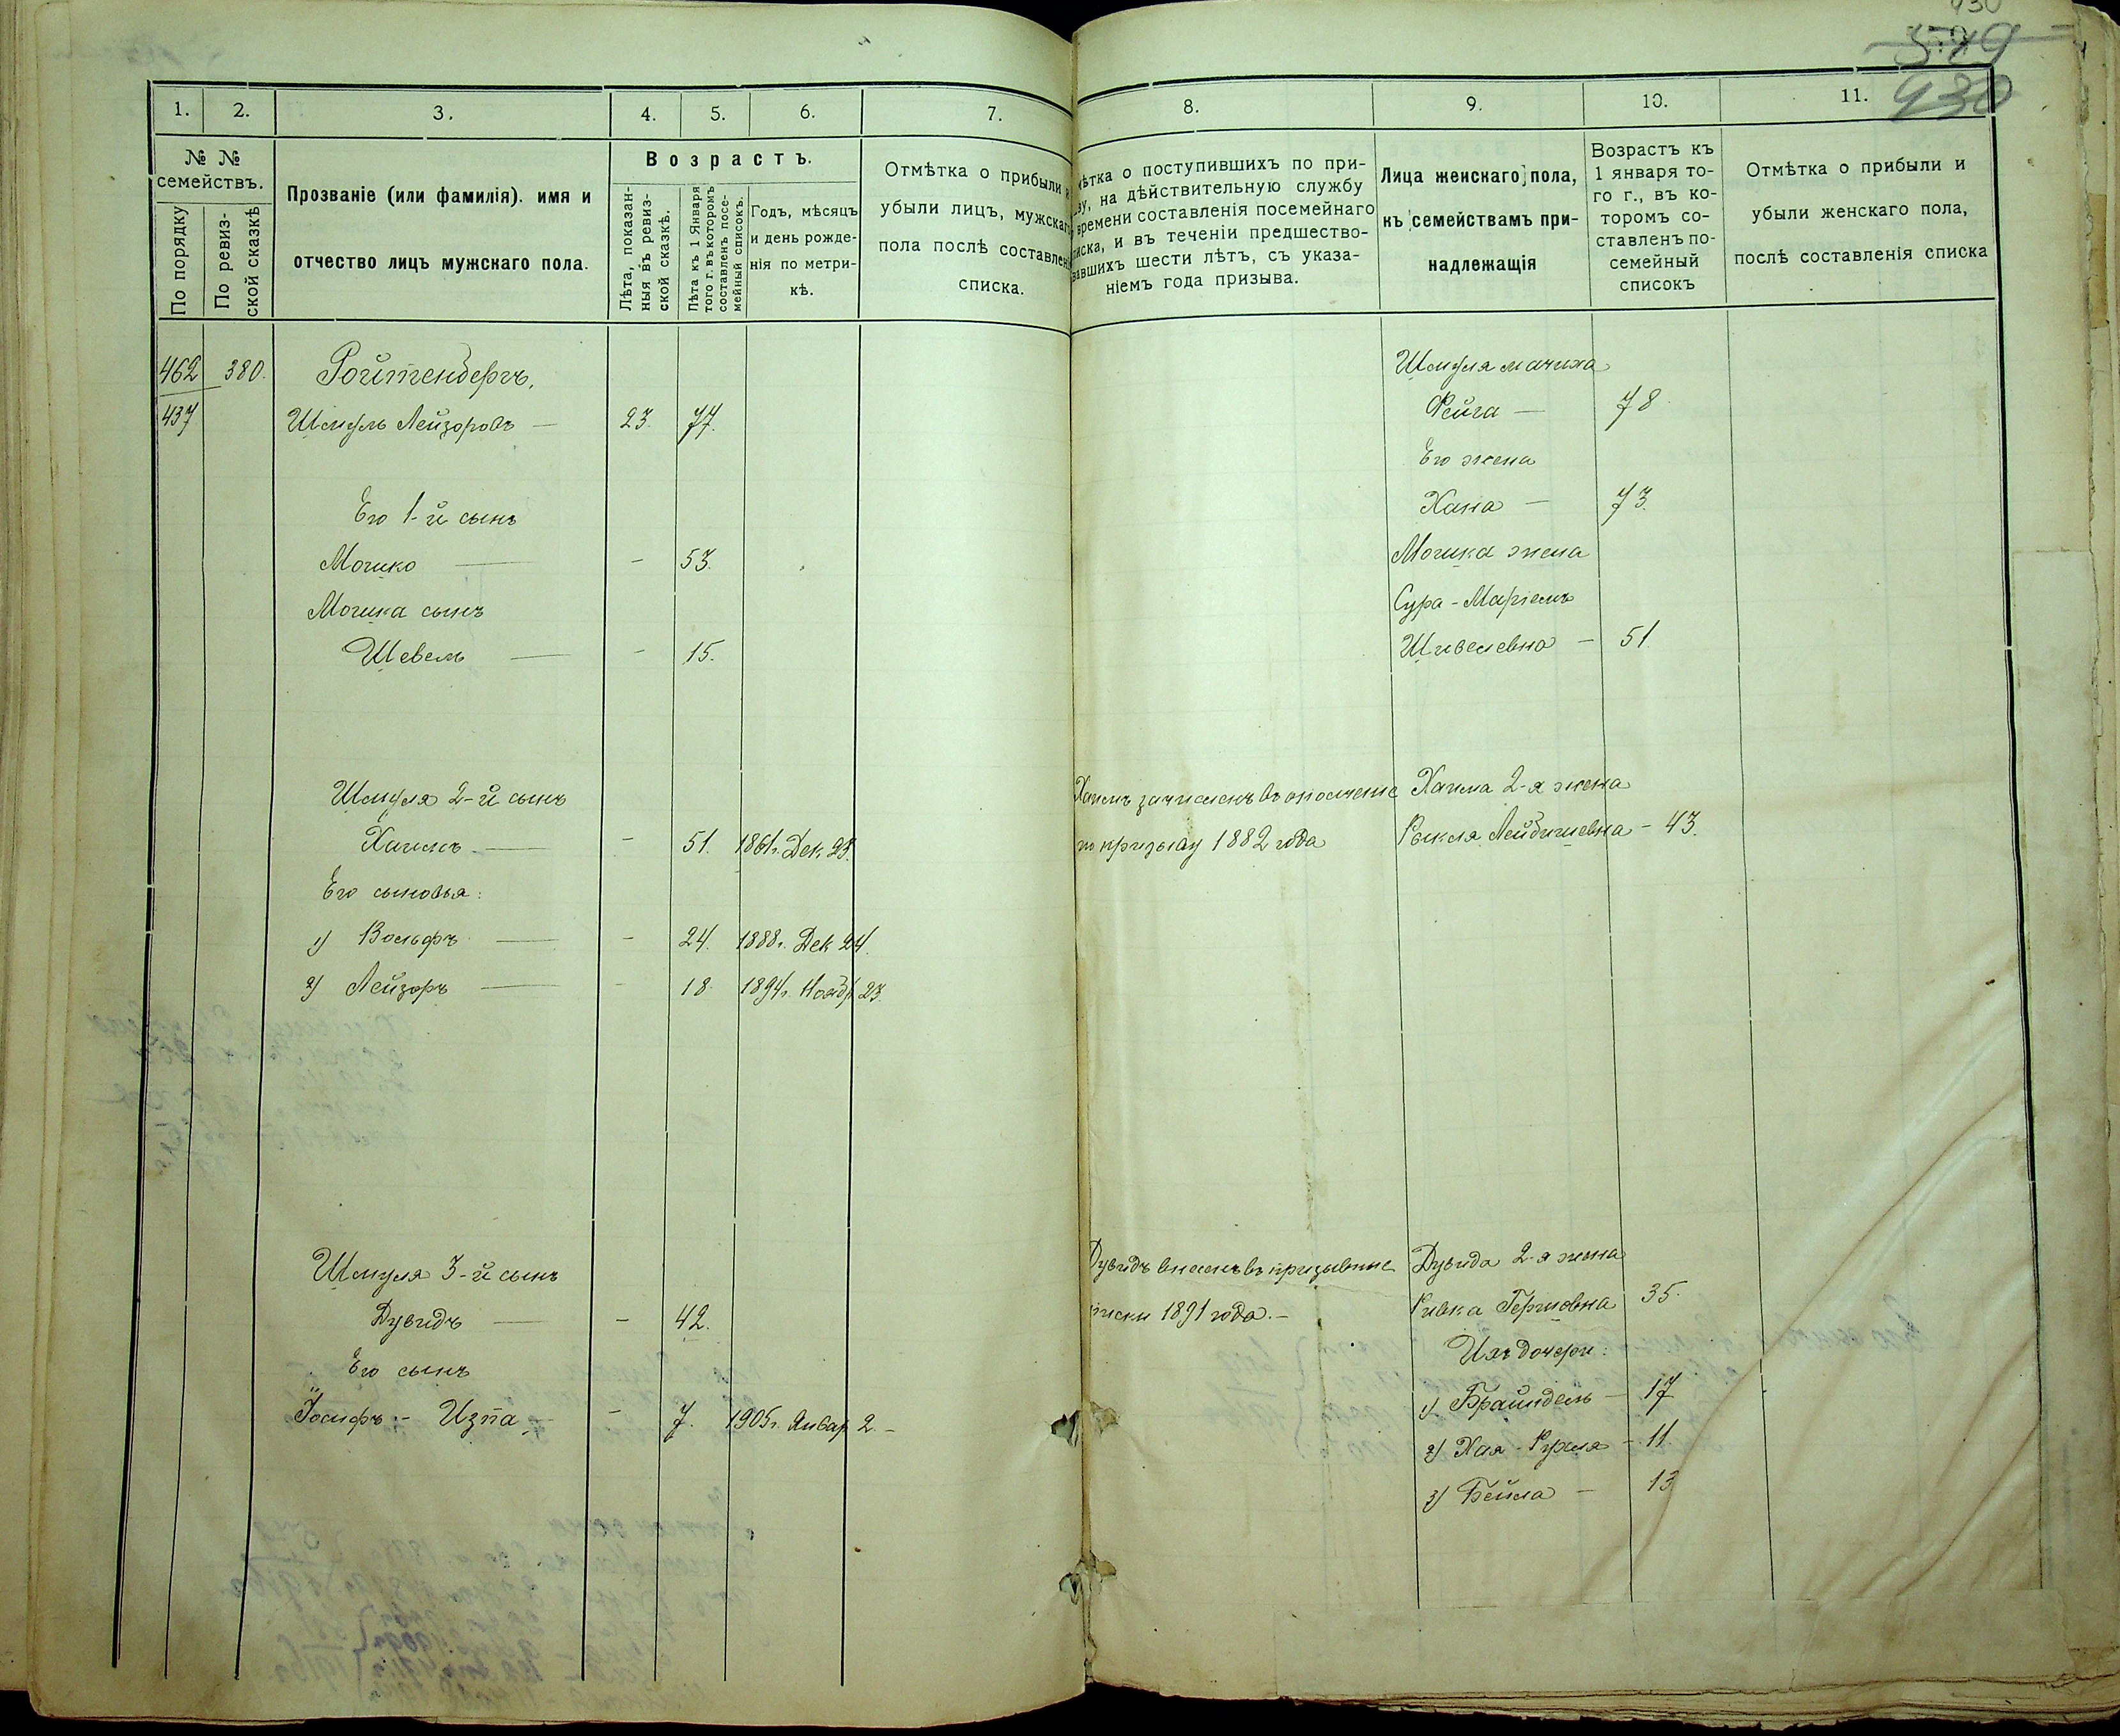 430
549
430
1.
2.
3.
4.
5.
6.
7.
№ №
семействъ.
По порядку
По ревиз-
ской сказкѣ
Прозваніе (или фамилія). имя и
отчество лицъ мужскаго пола.
Возрастъ.
Лѣта, показан-
ныя въ ревиз-
ской сказкѣ.
Лѣта къ 1 Января
того г. въ которомъ
составленъ посе-
мейный списокъ.
Годъ, мѣсяцъ
и день рожде-
нія по метри-
кѣ.
Отмѣтка о прибыли и
убыли лицъ, мужскаго
пола послѣ составлені
списка.
462 380. Ройтенбергъ,
437 Шмуль Лейзоровъ — 23. 77.
Его 1-й сынъ
Мошко — - 53.
Мошка сынъ
Шевель — - 15.
Шмуля 2-й сынъ
Хаимъ — - 51. 1861г. Дек. 23.
Его сыновья:
1) Вольфъ — - 24. 1888г. Дек 24.
2) Лейзоръ — - 18. 1894г. Нояб 23
Шмуля 3-й сынъ
Дувидъ — - 42.
Его сынъ
Іосифъ - Изпа - - 7. 1905г. Январ 2. -
8.
9.
10.
11.
мѣтка о поступившихъ по при-
ву, на дѣйствительную службу
времени составленія посемейнаго
писка, и въ теченіи предшество-
вавшихъ шести лѣтъ, съ указа-
ніемъ года призыва.
Лица женскаго пола,
къ семействамъ при-
надлежащія
Возрастъ къ
1 января то-
го г., въ ко-
торомъ со-
ставленъ по-
семейный
списокъ
Отмѣтка о прибыли и
убыли женскаго пола,
послѣ составленія списка
Шмуля мачиха
Фейга — 78
Его жена
Хана — 73.
Мошка жена
Сура - Маріемъ
Шивелевна - 51.
Хаимъ зачисленъ въ ополченіе
по призыву 1882 года
Хаима 2-я жена
Рыкля Лейбишевна - 43.
Дувидъ внесенъ въ призывные
писки 1891 года. -
Дувида 2-я жена
Ривка Гершовна 35.
Ихъ дочери:
1) Брайндель - 17
2) Хая - Рухля - 11.
3) Бейла - 13